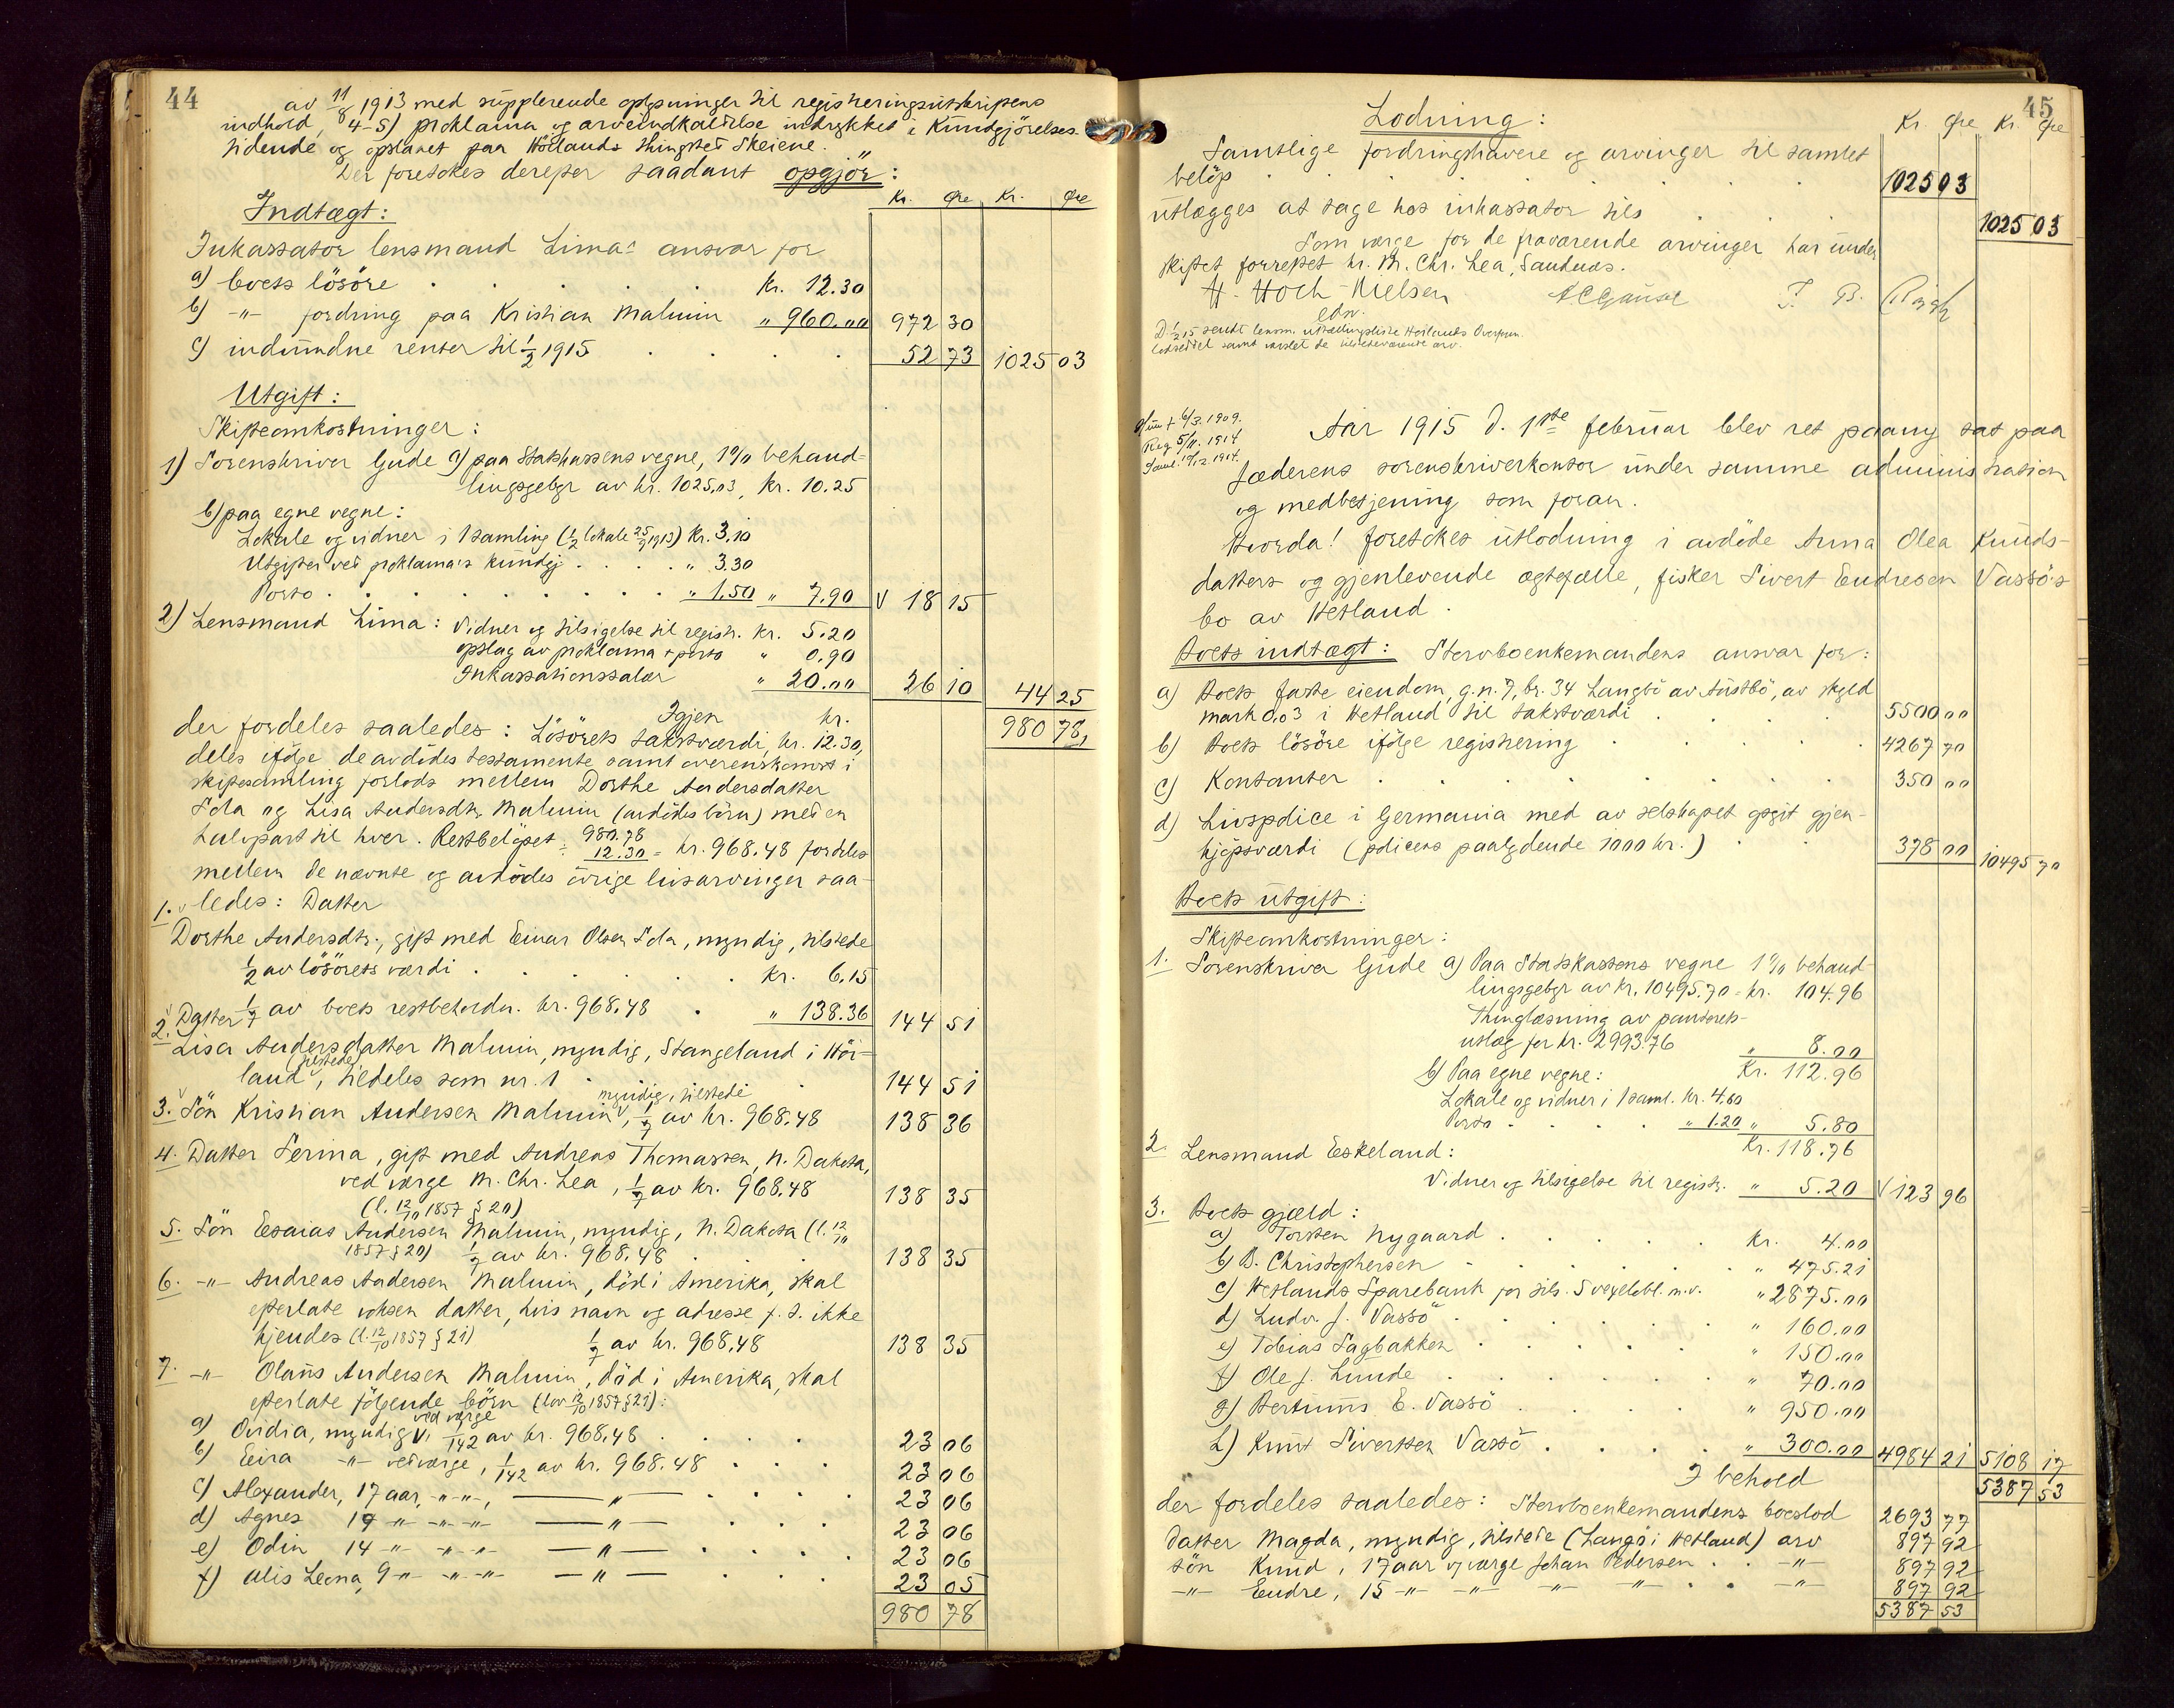 44
av 11/8 1913 med supplerende oplysninger til registreringsutskriptens
indhold, 4-5) proklama og arveindkaldelse indrykket i Kundgjörelses-
tidende og opslaaet paa Höilands thingsted Skeiene.
Der foretokes derefter saadant opgjör:
Kr. Øre Kr. Øre
Indtægt:
Inkassator lensmand Lima's ansvar for
a) boets lösöre . . . . . Kr. 12.30
b) -"- fordring paa Kristian Malmin " 960.00 972 30
c) indvundne renter til 1/2 1915 . . . . 52 73 1025 03
Utgift:
Skifteomkostninger:
1) Sorenskriver Gude a) paa Statskassens vegne, 1% behand-
lingsgebyr av kr. 1025,03, Kr. 10.25
b) paa egne vegne:
Lokale og vidner i 1 samling (1/2 lokale 25/9 1913) Kr. 3,10
Utgifter ved proklama's kundgj. . . . " 3.30
Porto . . . . . . . . " 1.50 " 7.90 V 18 15
2) Lensmand Lima: Vidner og tilsigelse til registr. Kr. 5.20
opslag av proklama + porto " 0.90
Inkassationssalær " 20.00 26 10 44 25
Igjen kr. 980 78,
der fordeles saaledes: Lösörets takstværdi, kr. 12.30,
deles ifölge de avdödes testamente samt overenskomst i
skiftesamling forlods mellem Dorthe Andersdatter
Sola og Lisa Andersdtr. Malmin (avdödes börn) med en
halvpart til hver. Restbelöpet: 980.78
÷ 12.30 = kr. 968.48 fordeles
mellem de nævnte og avdödes övrige livsarvinger saa-
ledes:
1. Datter
Dorthe Andersdtr., gift med Einar Olsen Sola, myndig, tilstede
1/2 av lösörets værdi . . . . . kr. 6,15
1/7 av boets restbeholdn. kr. 968,48 . " 138.36 144 51
2. Datter
Lisa Andersdatter Malmin, myndig, Stangeland i Höi-
land (tilstede), tildeles som nr. 1 . . 144 51
3. Sön Kristian Andersen Malmin myndig, tilstede, 1/7 av kr. 968,48 138 36
4. Datter Serina, gift med Andreas Thomassen, N. Dakota,
ved værge M. Chr. Lea, 1/7 av kr. 968.48 138 35
(l. 12/10 1857 § 20)
5. Sön Esaias Andersen Malmin, myndig, N. Dakota (l. 12/10
1857 § 20) 1/7 av kr. 968.48 . . . 138 35
6. -"- Andreas Andersen Malmin, död i Amerika, skal
efterlate voksen datter, hvis navn og adresse f. t. ikke
kjendes (l. 12/10 1857 § 21) 1/7 av kr. 968,48 138 35
7. -"- Olaus Andersen Malmin, död i Amerika, skal
efterlate fölgende börn (lov 12/10 1857 § 21):
a) Ovidia, myndig ved værge, 1/42 av kr. 968,48 . . . 23 06
b) Eira -"- ved værge, 1/42 av kr. 968.48 . . . 23 06
c) Alexander, 17 aar, -"-"-, -"- . . . . 23 06
d) Agnes 19 -"- -"-"- -"- . . . 23 06
e) Odin 14 -"- -"-"- -"- . . . . 23 06
f) Alis Leona 9 -"- -"-"- -"- . . . 23 05
980 78
45
Lodning:
Kr. Øre Kr. Øre
Samtlige fordringshavere og arvinger til samlet
belöp . . . . . . . 1025 03
utlægges at tage hos inkassator tils . . . 1025 03
Som værge for de fraværende arvinger har under
skiftet forrettet hr. M. Chr. Lea, Sandnæs.
H. Hoch-Nielsen
edv.
D. 1/2 15 sendt lensm. utlodningsliste Höilands Overform.
Aar 1915 d. 1ste februar blev ret paany sat paa
Anm † 6/3. 1909.
Reg. 5/11. 1914
Saml. 19/12 1914.
Jæderens sorenskriverkontor under samme administration
og medbetjening som foran.
Hvorda! foretokes utlodning i avdöde Anna Olea Knuds-
datters og gjenlevende ægtefælle, fisker Sivert Endresen Vassö's
bo av Hetland.
Boets indtægt: Stervboenkemandens ansvar for:
a) Boets faste eiendom, g.n. 7, br. 34 Langbö av Austbö, av skyld
mark 0,03 i Hetland til takstværdi . . . . 5500 00
b) Boets lösöre ifölge registrering . . . . . 4267 70
c) Kontanter . . . . . . . 350 00
d) Livspolice i Germania med av selskapet opgit gjen-
kjöpsværdi (policens paalydende 1000 kr.) . . 378 00 10495 70
Boets utgift:
Skifteomkostninger:
1. Sorenskriver Gude a) Paa Statskassens vegne 1% behand-
lingsgebyr av kr. 10495.70 = kr. 104.96
Thinglæsning av panterets-
utlæg for kr. 2993.76 " 8.00
Kr. 112.96
b) Paa egne vegne:
Lokale og vidner i 1 saml. kr. 4.60
Porto . . . . " 1.20 " 5.80
Kr. 118.76
2. Lensmand Eskeland:
Vidner og tilsigelse til registr. " 5.20 V 123 96
3. Boets gjæld:
a) Torsten Nygaard . . . . . kr. 4.00
b) B. Christophersen . . . . . " 475.21
c) Hetlands Sparebank for tils. 5 vexelobl. m.v. " 2875.00
d) Ludv. J. Vassö . . . . . . " 160.00
e) Tobias Sagbakken . . . . . " 150.00
f) Ole J. Lunde . . . . . . " 70.00
g) Bertinius E. Vassö . . . . " 950.00
h) Knut Sivertsen Vassö . . . . " 300.00 4984 21 5108 17
I behold 5387 53
der fordeles saaledes: Stervboenkemandens boeslod 2693 77
datter Magda, myndig, tilstede (Langö i Hetland) arv 897 92
sön Knud, 17 aar v/ værge Johan Pedersen . . -"- 897 92
-"- Endre, 15 -"- -"- -"- -"- . . -"- 897 92
5387 53